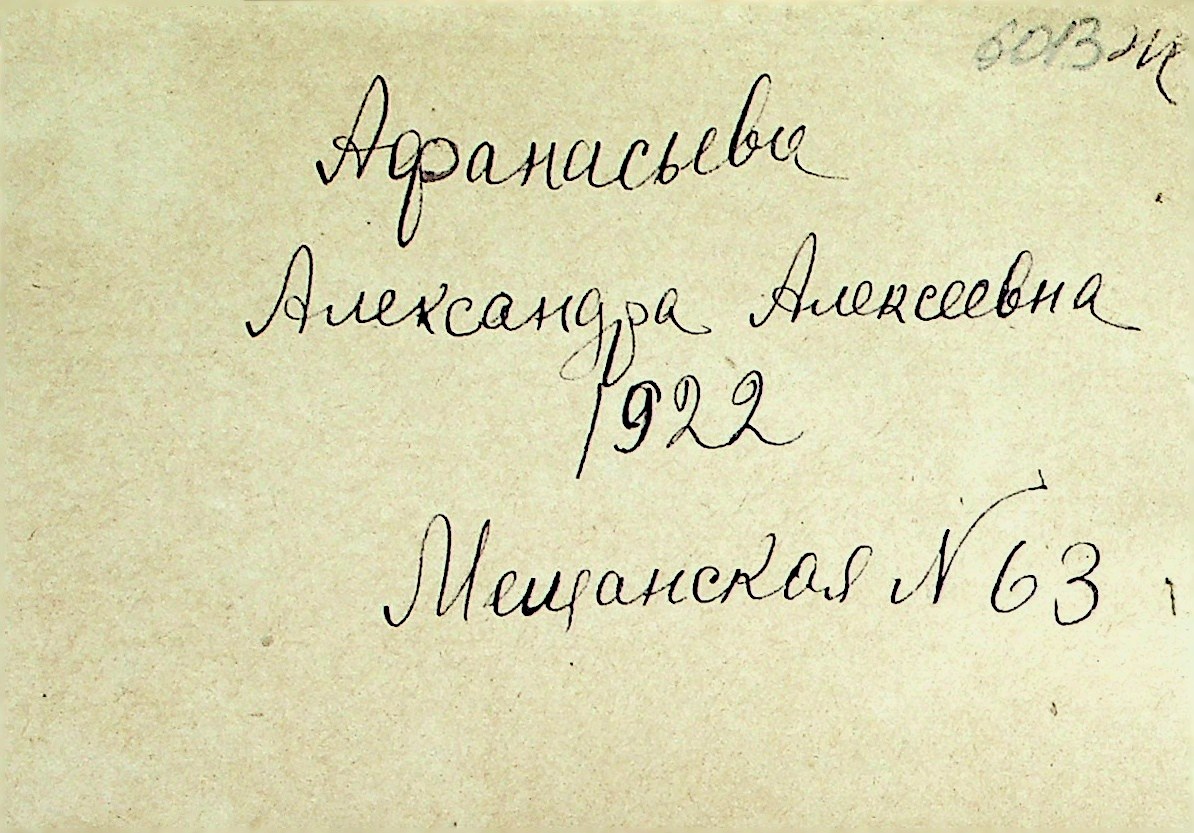 6013
Афанасьева
Александра Алексеевна
1922
Мещанская N 63